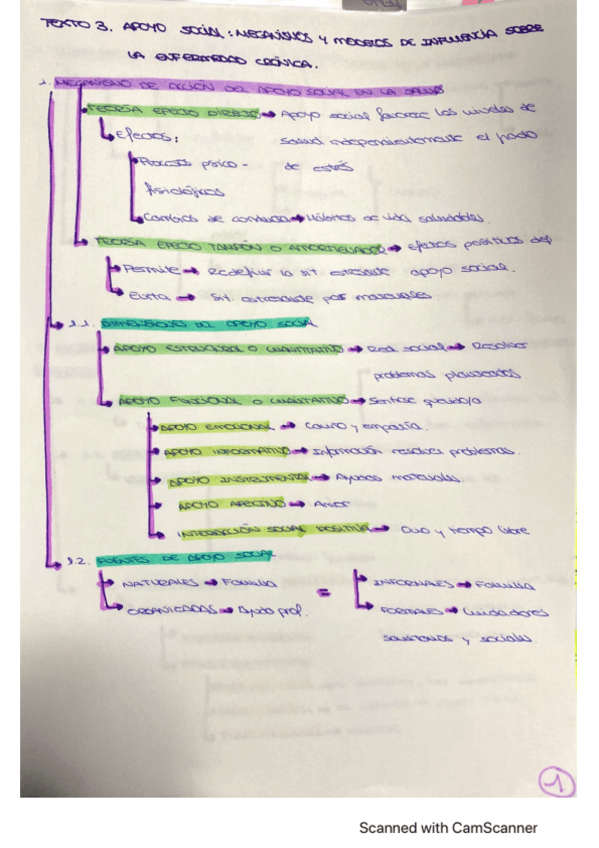 TEXTO 3. APOYO SOCIAL: MECANISMOS Y MODELOS DE INFLUENCIA SOBRE
LA ENFERMEDAD CRÓNICA.
1. MECANISMO DE ACCIÓN DEL APOYO SOCIAL EN LA SALUD
TEORÍA EFECTO DIRECTO → Apoyo social favorece los niveles de
Efectos: salud independientemente el grado
Procesos psico- de estrés
fisiológicos
Cambios de conducta → Hábitos de vida saludables.
TEORÍA EFECTO TAMPÓN O AMORTIGUADOR → efectos positivos del
Permite → Redefinir la sit. estresante apoyo social.
Evita → Sit. estresante por
1.1. DIMENSIONES DEL APOYO SOCIAL
APOYO ESTRUCTURAL O CUANTITATIVO → Red social → Resolver
problemas planteados.
APOYO FUNCIONAL O CUALITATIVO → Sentirse querido/a
APOYO EMOCIONAL → Cariño y empatía.
APOYO INFORMATIVO → Información resolver problemas.
APOYO INSTRUMENTAL → Ayudas materiales.
APOYO AFECTIVO → Amor
INTERACCIÓN SOCIAL POSITIVA → Ocio y tiempo libre
1.2. FUENTES DE APOYO SOCIAL
NATURALES → Familia = INFORMALES → Familia
ORGANIZADAS → Ayuda prof. FORMALES → Cuidadores
sanitarios y sociales.
1
Scanned with CamScanner